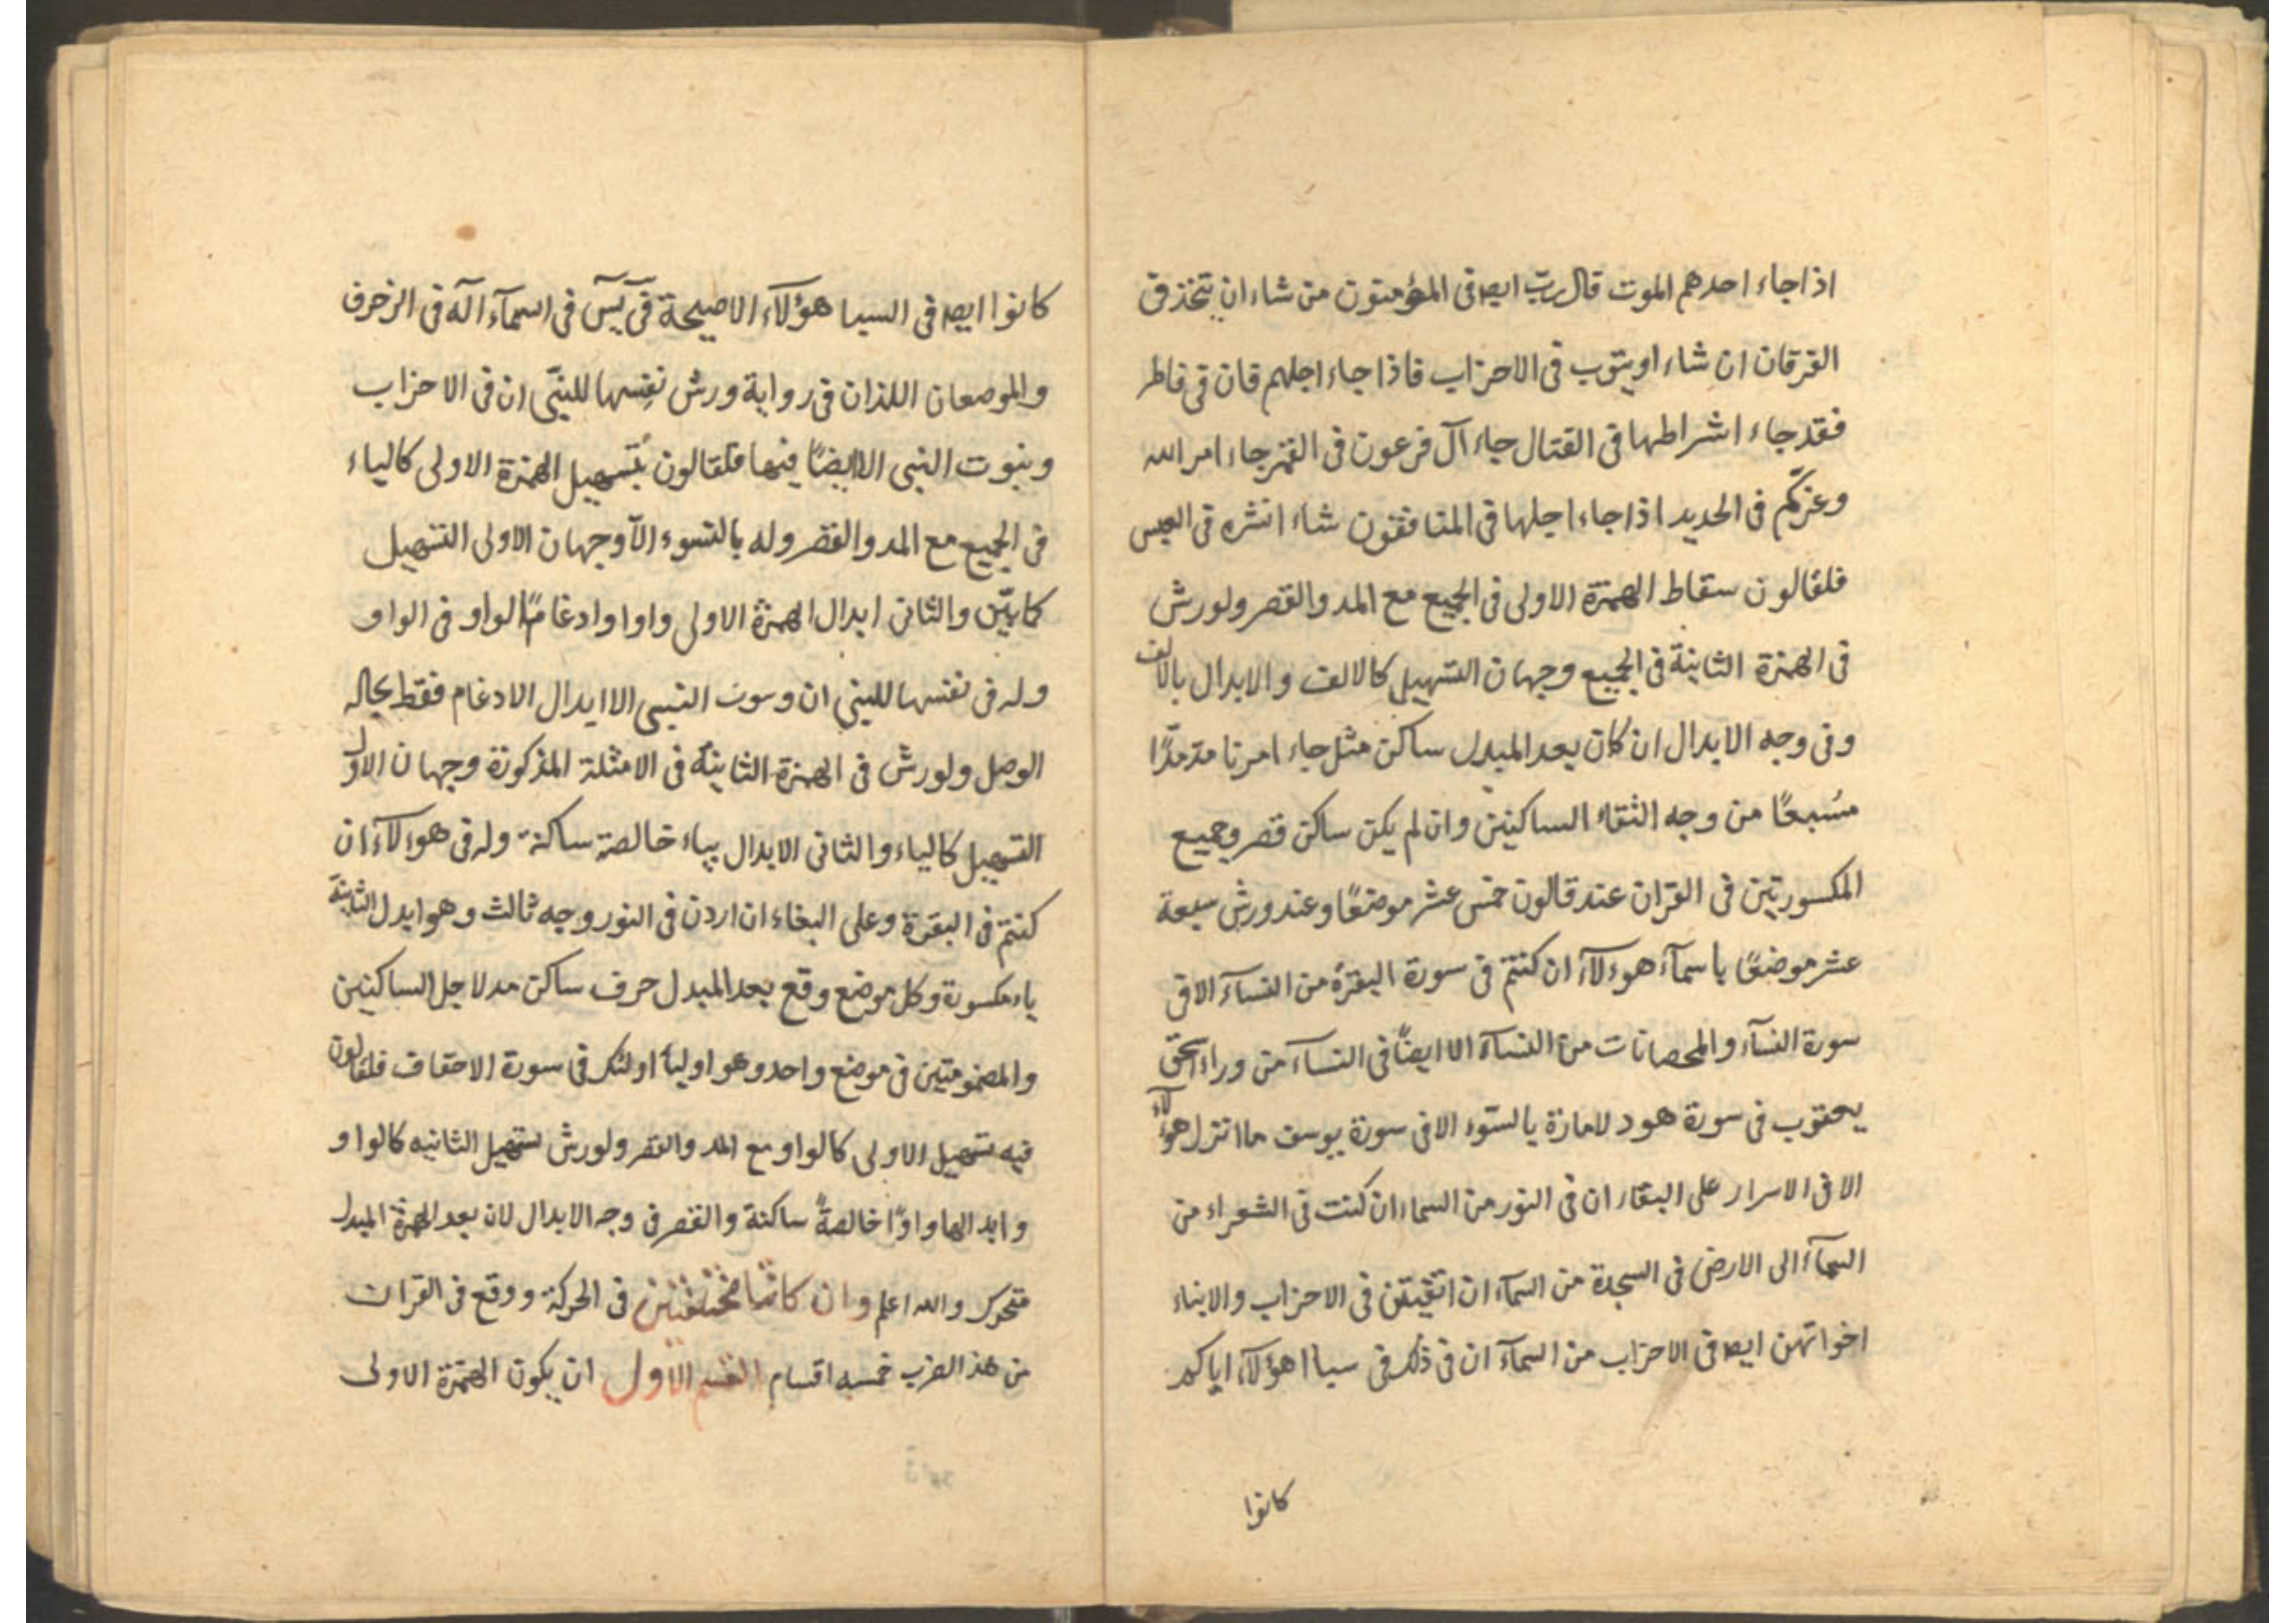 اذا جاء احدهم الموت قال رب ايضه فى المؤمنون من شاء ان يتخذ فى
الفرقان ان شاء او يتوب فى الاحزاب فاذا جاء اجلهم فان فى فاطر
فقد جاء اشراطها فى القتال جاء آل فرعون فى القمر جاء امر الله
وغركم فى الحديد اذا جاء اجلها فى المنافقون شاء انشره فى العبس
فلقالون سقاط الهمزة الاولى فى الجميع مع المد والقصر ولورش
فى الهمزة الثانية فى الجميع وجهان التسهيل كالالف والابدال بالالف
وفى وجه الابدال ان كان بعد المبدل ساكن مثل جاء امرنا مد مدًّا
مشبعًا من وجه التقاء الساكنين وان لم يكن ساكن قصر وجميع
المكسورتين فى القران عند قالون خمس عشر موضعًا وعند ورش سبعة
عشر موضعًا باسمآء هوءلآء ان كنتم فى سورة البقرة من النسآء الا فى
سورة النسآء والمحصانات من النسآء الا ايضًا فى النسآء من وراء اسحق
يعقوب فى سورة هود لامارة بالسّوء الا فى سورة يوسف ما انزل هؤلآء
الا فى الاسراء على البغاء ان فى النور من السماء ان كنت فى الشعراء من
السمآء الى الارض فى السجدة من السمآء ان اتقيتن فى الاحزاب والابناء
اخواتهن ايضه فى الاحزاب من السمآء ان فى ذلك فى سبا اهؤلآء اياكم
كانوا
كانوا ايضه فى السبا هؤلآء الا صيحة فى يس فى السمآء اله فى الزخرف
والموضعان اللذان فى رواية ورش نفسها للنبى ان فى الاحزاب
وبيوت النبى الا ايضًا فيها فلقالون تسهيل الهمزة الاولى كالياء
فى الجميع مع المد والقصر وله بالسوء الآ وجهان الاولى التسهيل
كما بيّن والثانى ابدال الهمزة الاولى واوا وادغام الواو فى الواو
وله فى نفسها للنبى ان وبيوت النبى الا ابدال الادغام فقط بحاله
الوصل ولورش فى الهمزة الثانية فى الامثلة المذكورة وجهان الاول
التسهيل كالياء والثانى الابدال بياء خالصة ساكنة وله فى هوءلآء ان
كنتم فى البقرة وعلى البغاء ان اردن فى النور وجه ثالث وهو ابدل الثانية
ياء مكسورة وكل موضع وقع بعد المبدل حرف ساكن مد لاجل الساكنين
والمضمومتين فى موضع واحد وهو اوليآء اولئك فى سورة الاحقاف فلقالون
فيه تسهيل الاولى كالواو مع المد والقصر ولورش تسهيل الثانيه كالواو
وابدالها واوًا خالصةً ساكنة والقصر فى وجه الابدال لان بعد الهمزة المبدل
متحرك والله اعلم وان كانتا مختلفتين فى الحركة ووقع فى القران
من هذ الضرب خمسه اقسام القسم الاول ان يكون الهمزة الاولى